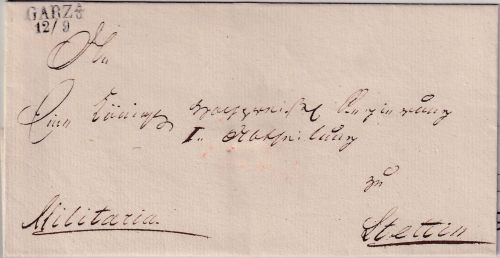 GARZ a/O
12/9
An
Eine Königl. Hochpreisl. Regierung
I. Abtheilung
zu
Militaria. Stettin